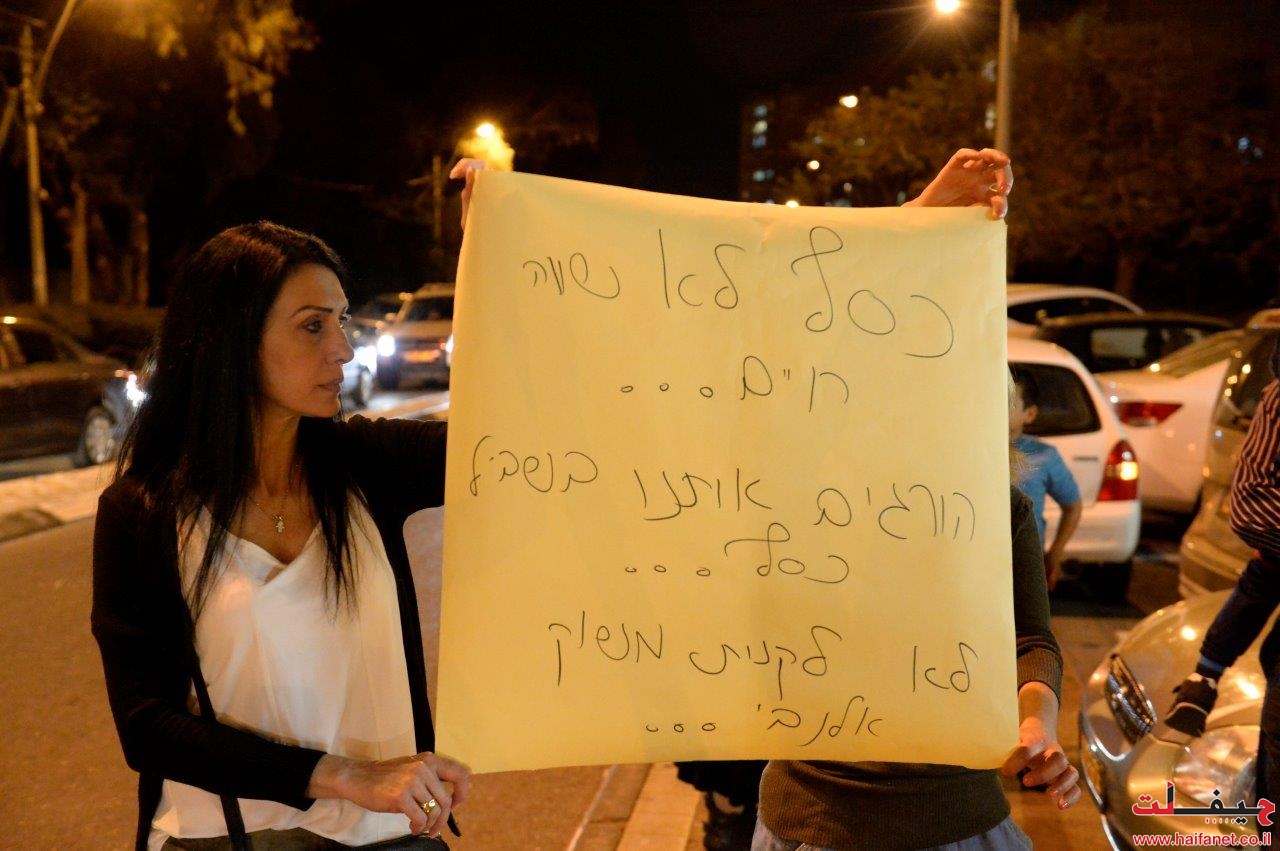 כסף לא נשווה
חיים...
הורגים אותנו בשביל
כסף...
לא לקנית מנשוק
אלנבי...
حيفا نت
www.haifanet.co.il